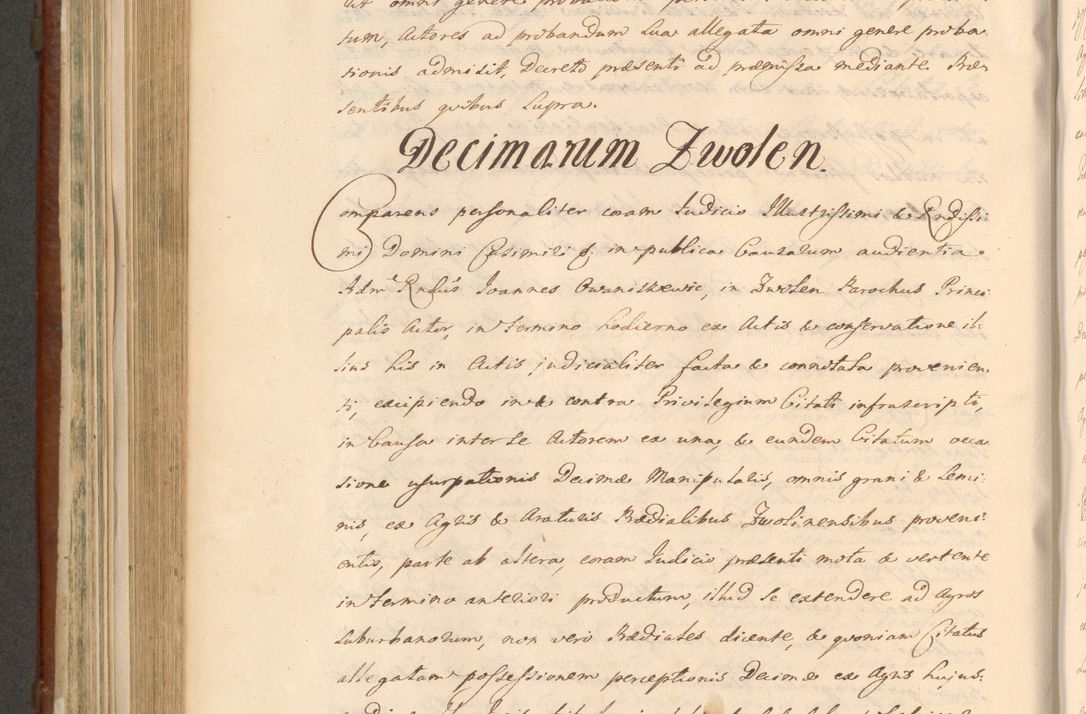 ut omni genere
sum, Actores ad probandum sua allegata omni genere proba
tionis admisit, Decreto præsenti ad præmissa mediante. Præ
sentibus quibus supra.
Decimarum Zwolen.
Comparens personaliter coram Judicio Illustrissimi & Rndissi
mi Domini Casimiri &: in publica Causarum audientia
Adm Rndus Joannes Owaniszkewic, in Zwolen Parochus Princi
palis Actor, in termino hodierno ex Actis & conservatione il:
lius his in Actis judicialiter facta & connotata provenien
ti, excipiendo in & contra Privilegium Citati infrascripti,
in Causa inter se Actorem ex una, & eundem Citatum occa
sione usurpationis Decimæ Manipulalis, omnis grani & semi:
nis, ex Agris & Araturis Prædialibus Zwolinensibus proveni:
entis, parte ab altera, coram Judicio præsenti mota & vertente
in termino anteriori productum, illud se extendere ad Agros
suburbanorum, non vero Prædiales dicente, & quoniam Citatus
allegatam possessionem perceptionis Decimæ ex Agris hujus: